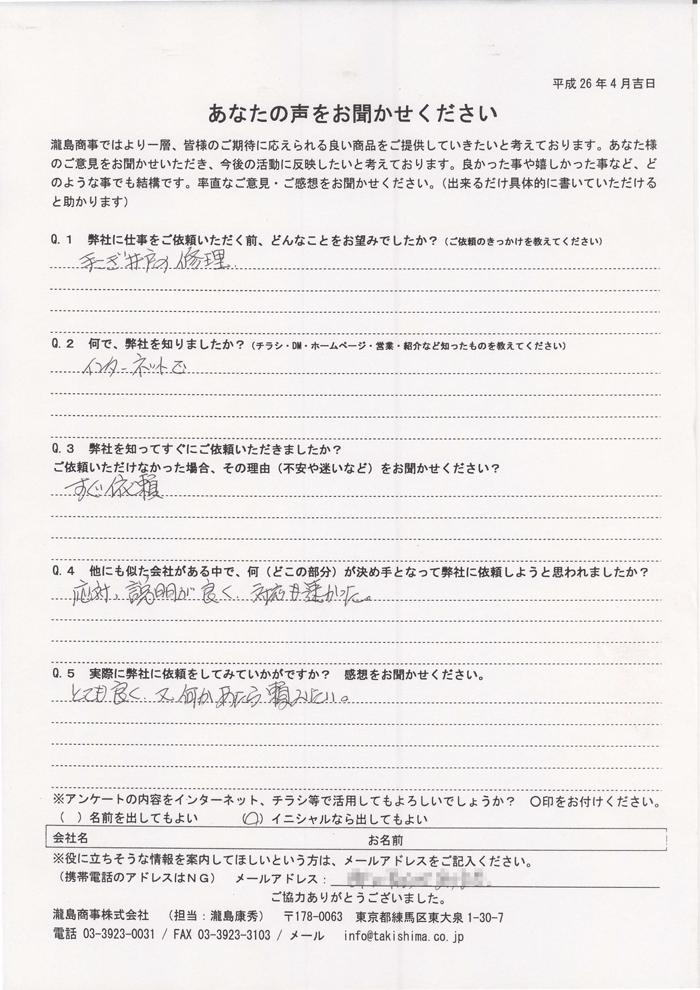 平成26年4月吉日
あなたの声をお聞かせください
瀧島商事ではより一層、皆様のご期待に応えられる良い商品をご提供していきたいと考えております。あなた様
のご意見をお聞かせいただき、今後の活動に反映したいと考えております。良かった事や嬉しかった事など、ど
のような事でも結構です。率直なご意見・ご感想をお聞かせください。（出来るだけ具体的に書いていただける
と助かります）
Q.1　弊社に仕事をご依頼いただく前、どんなことをお望みでしたか？（ご依頼のきっかけを教えてください）
手こぎ井戸の修理
Q.2　何で、弊社を知りましたか？（チラシ・DM・ホームページ・営業・紹介など知ったものを教えてください）
インターネットで
Q.3　弊社を知ってすぐにご依頼いただきましたか？
ご依頼いただけなかった場合、その理由（不安や迷いなど）をお聞かせください？
すぐ依頼
Q.4　他にも似た会社がある中で、何（どこの部分）が決め手となって弊社に依頼しようと思われましたか？
応対、説明が良く、対応も速かった。
Q.5　実際に弊社に依頼をしてみていかがですか？　感想をお聞かせください。
とても良く、又、何かあったら頼みたい。
※アンケートの内容をインターネット、チラシ等で活用してもよろしいでしょうか？　〇印をお付けください。
（　）名前を出してもよい　（〇）イニシャルなら出してもよい
会社名　お名前
※役に立ちそうな情報を案内してほしいという方は、メールアドレスをご記入ください。
（携帯電話のアドレスはNG）　メールアドレス：
ご協力ありがとうございました。
瀧島商事株式会社　（担当：瀧島康秀）　〒178-0063　東京都練馬区東大泉1-30-7
電話 03-3923-0031 / FAX 03-3923-3103 / メール　info@takishima.co.jp